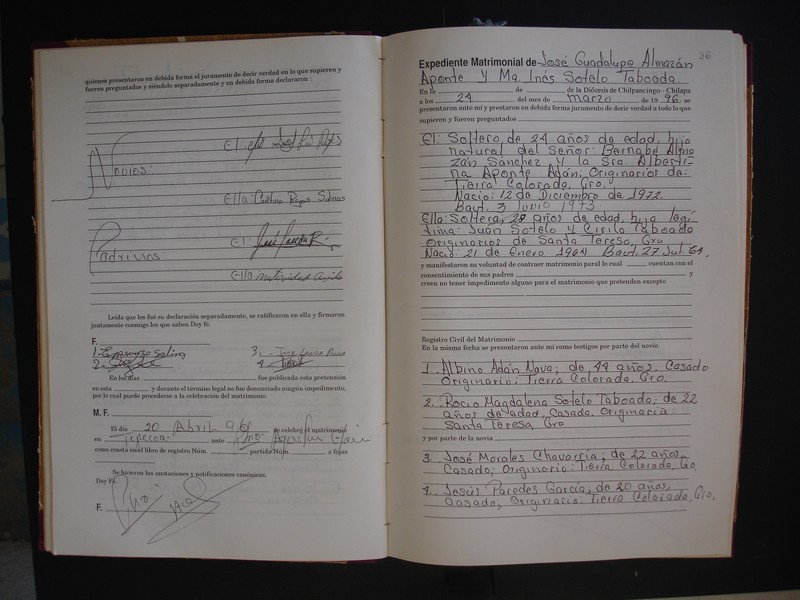 quienes presentaron en debida forma el juramento de decir verdad en lo que supieren y
fueren preguntados y siéndolo separadamente y en debida forma declararon :
El:
Novios:
Ella: Reyes Salinas
El: José
Padrinos
Ella Natividad
Leída que les fué su declaración separadamente, se ratificaron en ella y firmaron
juntamente conmigo los que saben Doy fé.
F.
1- Salinas
3.- José
2-
4-
En los días fue publicada esta pretensión
en esta y durante el término legal no fue denunciado ningún impedimento,
por lo cual puede procederse a la celebración del matrimonio.
M. F.
El día 20 Abril 96 se celebró el matrimonio
en Tepecoa ante
como consta en el libro de registro Núm. partida Núm. a fojas
Se hicieron las anotaciones y notificaciones canónigas.
Doy Fé.
F.
36
Expediente Matrimonial de José Guadalupe Almazán
Aponte Y Ma. Inés Sotelo Taboada.
En la de de la Diócesis de Chilpancingo - Chilapa
a los 24 del mes de marzo de 19 96 se
presentaron ante mí y prestaron en debida forma juramento de decir verdad a todo lo que
supieren y fueren preguntados
El: Soltero de 24 años de edad, hijo
natural del Señor: Bernabé Alma
zán Sánchez y la Sra. Alberti-
na Aponte Adán; Originarios de
Tierra Colorada, Gro.
Nació: 12 de Diciembre de 1972.
Baut. 3 Junio 1973
Ella: Soltera, 29 años de edad, hija legí
tima: Juan Sotelo y Cirila Taboado
Originarios de Santa Teresa, Gro
Nació: 21 de Enero 1964 Baut. 27 Jul 64.
y manifestaron su voluntad de contraer matrimonio paral lo cual cuentan con el
consentimiento de sus padres y
creen no tener impedimento alguno para el matrimonio que pretenden excepto
Registro Civil del Matrimonio
En la misma fecha se presentaron ante mí como testigos por parte del novio
1. Albino Adán Nava; de 44 años. Casado
Originario: Tierra Colorada, Gro.
2. Rocio Magdalena Sotelo Taboada; de 22
años de edad, Casado. Originaria:
Santa Teresa, Gro
y por parte de la novia
3. José Morales Chavarría, de 22 años,
Casado; Originario: Tierra Colorada, Gro
4. Jesús Paredes García, de 20 años,
Casado, Originario: Tierra Colorada, Gro.